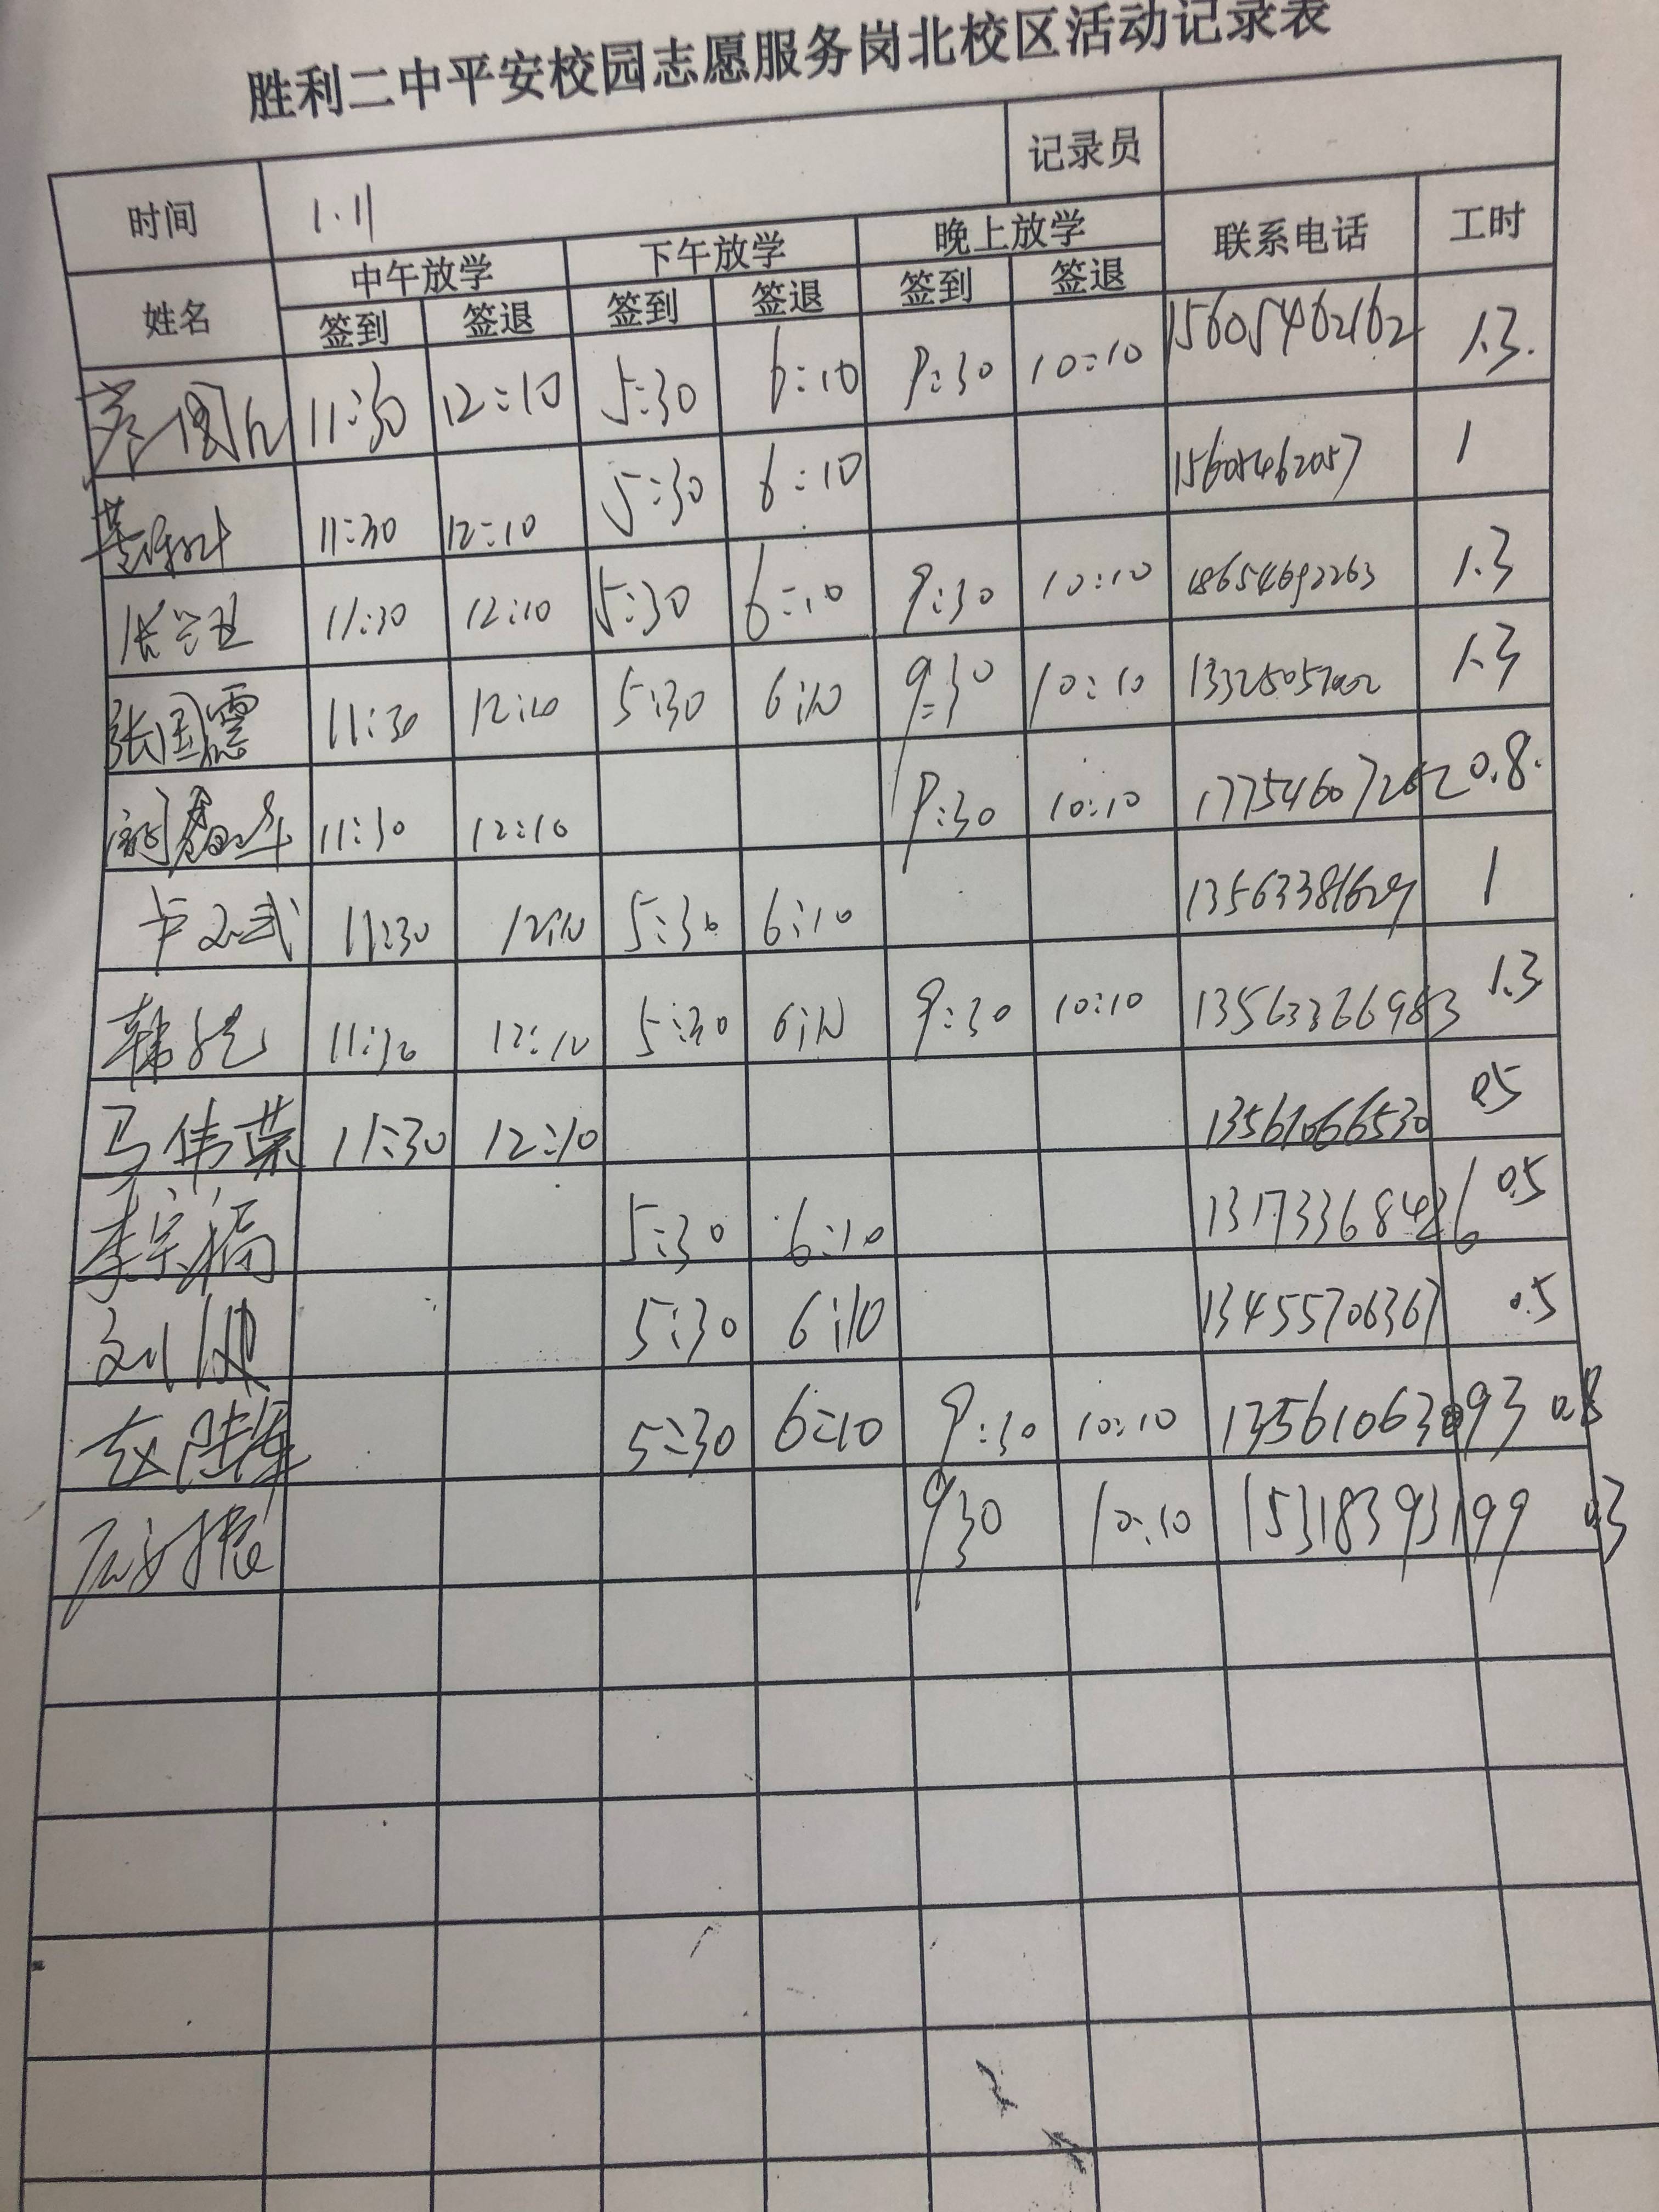 胜利二中平安校园志愿服务岗北校区活动记录表
时间 1.11 记录员
姓名 中午放学 下午放学 晚上放学 联系电话 工时
签到 签退 签到 签退 签到 签退
11:30 12:10 5:30 6:10 9:30 10:10 15605462162 1.3.
11:30 12:10 5:30 6:10 15605462057 1
11:30 12:10 5:30 6:10 9:30 10:10 18654692263 1.3
张国震 11:30 12:10 5:30 6:10 9:30 10:10 1.3
11:30 12:10 9:30 10:10 17754607262 0.8.
卞文武 11:30 12:10 5:30 6:10 13563381629 1
韩 11:30 12:10 5:30 6:10 9:30 10:10 13563366983 1.3
马伟荣 11:30 12:10 13561066530 0.5
李宗福 5:30 6:10 13173368426 0.5
刘健 5:30 6:10 13455706367 0.5
赵陆军 5:30 6:10 9:30 10:10 13561063093 0.8
930 10:10 15318393199 0.3